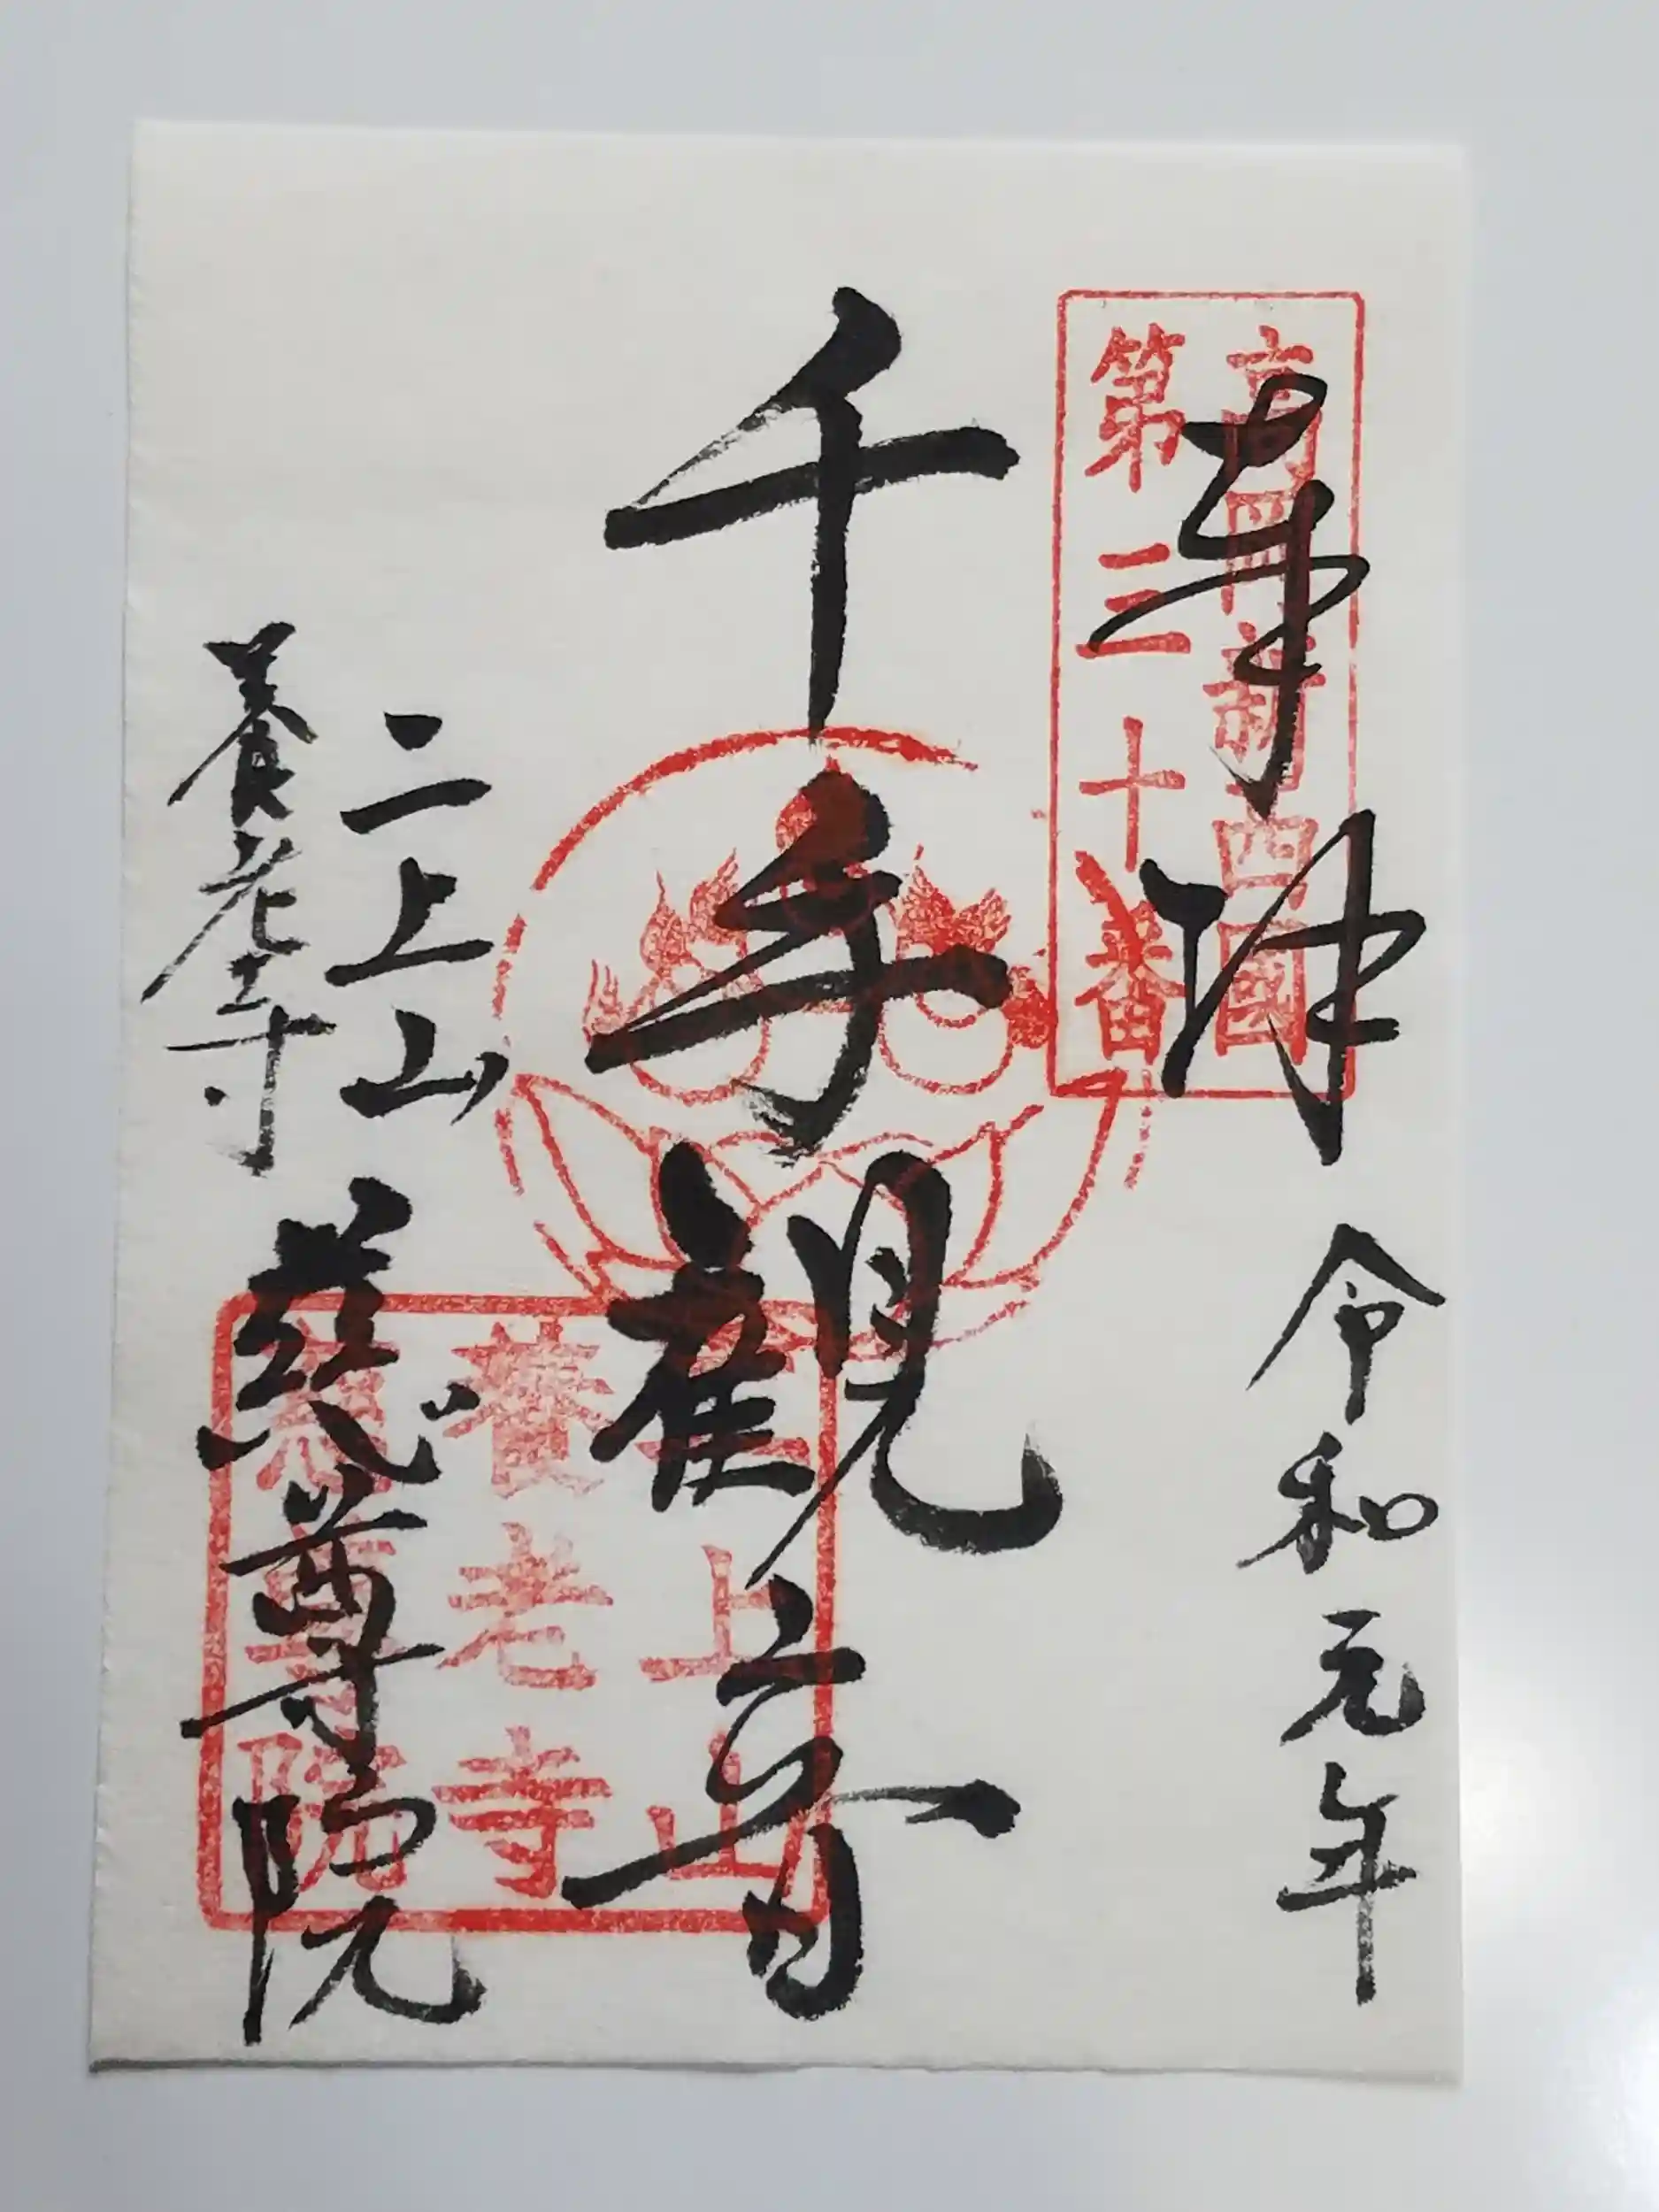 奉拝
令和元年
高岡新西國
第三十番
千手観音
二上山
養老寺
慈尊院
二上山
養老寺
慈尊院